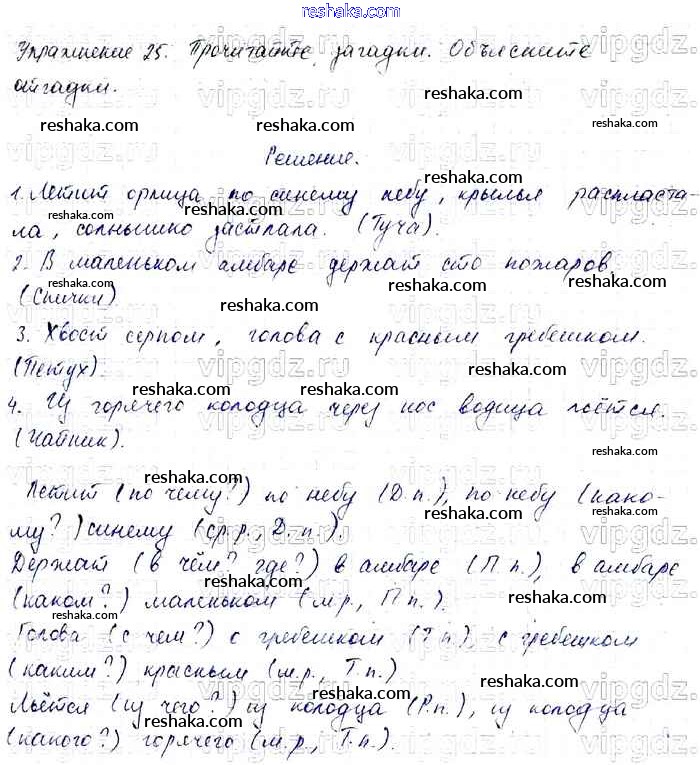 reshaka.com
Упражнение 25. Прочитайте загадки. Объясните
отгадки.
Решение.
1. Летит орлица по синему небу, крылья распласта-
ла, солнышко застлала. (Туча).
2. В маленьком амбаре держат сто пожаров.
(Спички)
3. Хвост серпом, голова с красным гребешком.
(Петух).
4. Из горячего колодца через нос водица льётся.
(Чайник).
Летит (по чему?) по небу (Д.п.), по небу (како-
му?) синему (ср.р., Д.п.).
Держат (в чём? где?) в амбаре (П.п.), в амбаре
(каком?) маленьком (м.р., П.п.).
Голова (с чем?) с гребешком (Т.п), с гребешком
(каким?) красным (м.р., Т.п.)
Льётся (из чего?) из колодца (Р.п.), из колодца
(какого?) горячего (м.р., Т.п.).